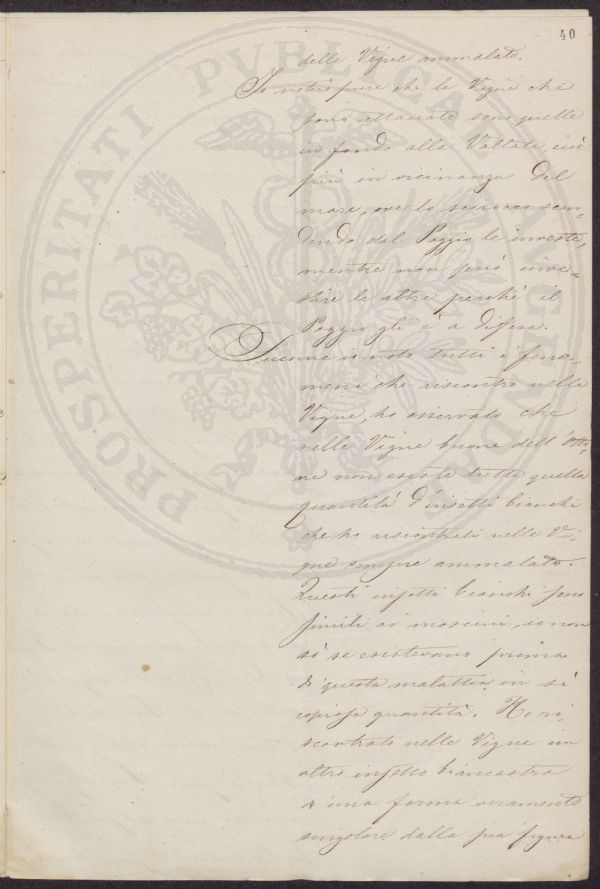 40
delle Vigne ammalate.
Io noterò pure che le Vigne che
sono attaccate sono quelle
in fondo alla Vallata cioè
più in vicinanza del
mare, ove lo scirocco scen-
dendo dal Poggio le investe,
mentre non può inve-
stire le altre perchè il
Poggio gli è a difesa.
Siccome io noto tutti i feno-
meni che riscontro nelle
Vigne, ho osservato che
nelle Vigne buone dell'Otto-
ne non esiste tutta quella
quantità d'insetti bianchi
che ho riscontrati nelle Vi-
gne sempre ammalate.
Questi insetti bianchi sono
simili ai moscini, io non
sò se esistevano prima
di questa malattia in sì
copiosa quantità. Ho ri-
scontrato nelle Vigne un
altro insetto biancastro
di una forma veramente
singolare dalla sua figura
PROSPERITATI PVBLICAE AVGENDAE